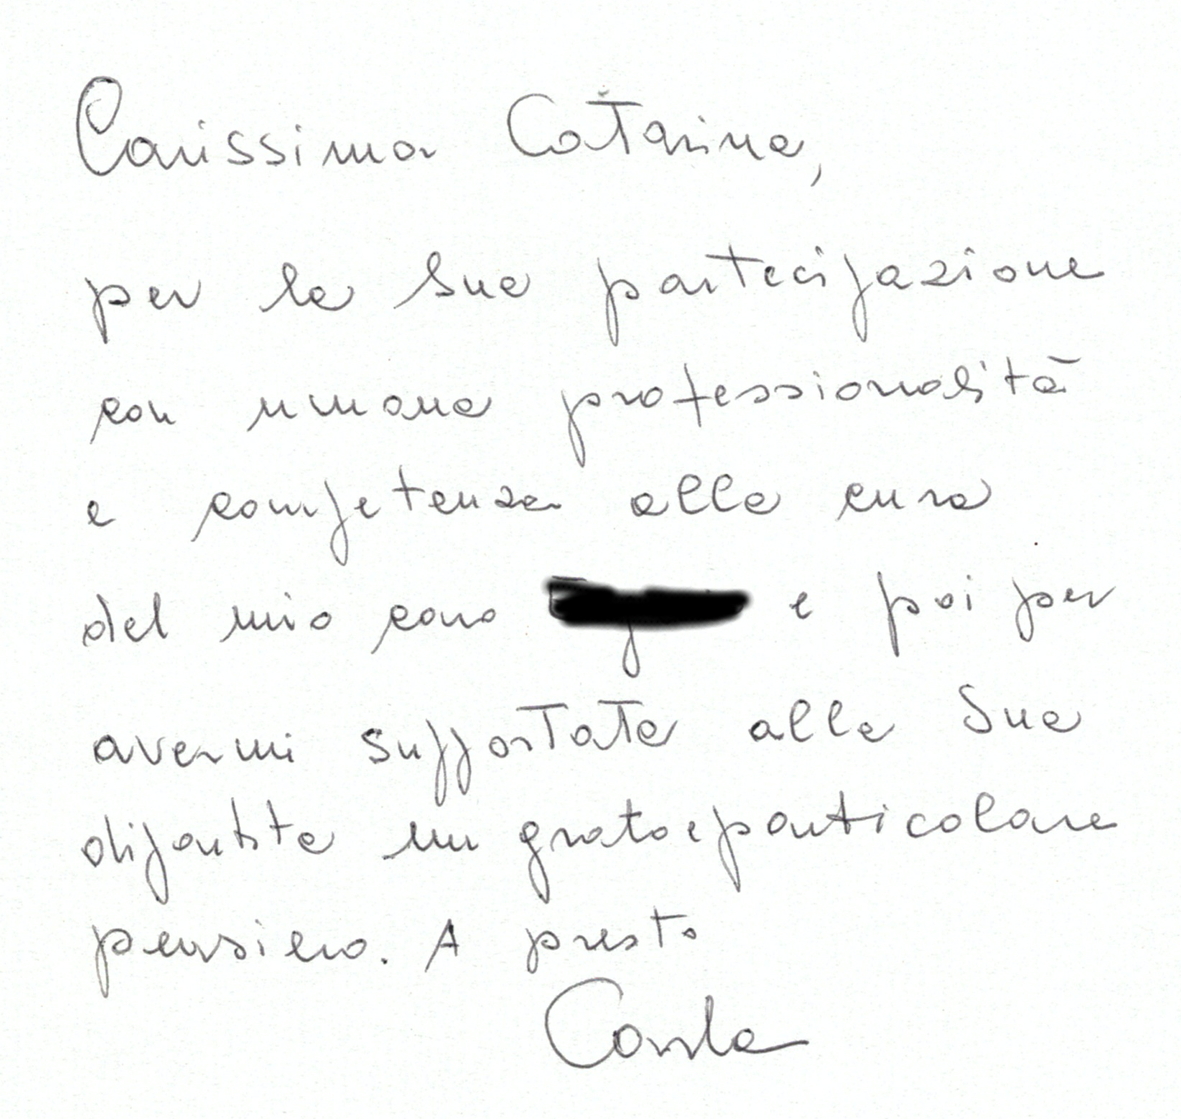 Carissima Catarina,
per la Sua partecipazione
con umana professionalità
e competenza alla cura
del mio caro e poi per
avermi supportata alla Sua
dipartita un grato e particolare
pensiero. A presto
Carla